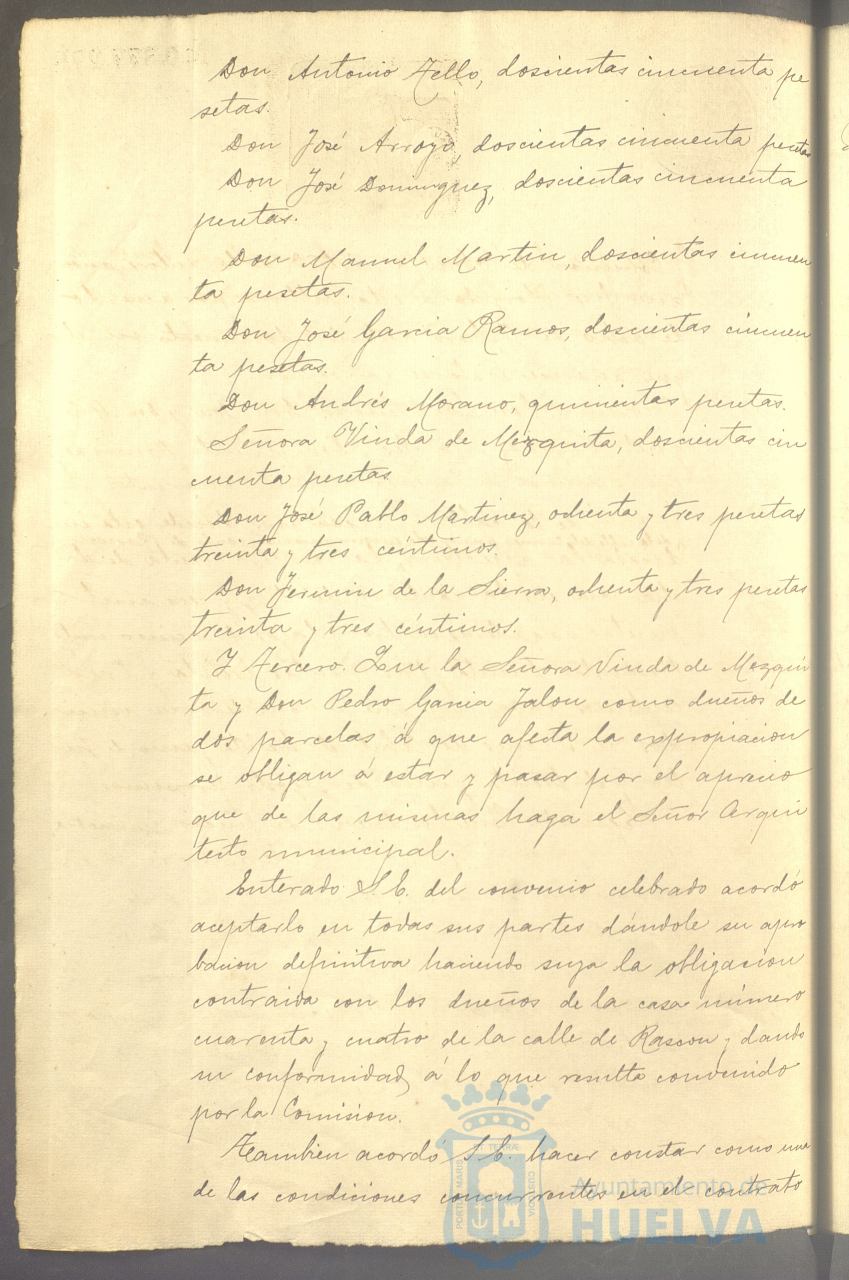 Don Antonio Tello, doscientas cincuenta pe
setas.
Don José Arroyo doscientas cincuenta pesetas
Don José Dominguez, doscientas cincuenta
pesetas.
Don Manuel Martin, doscientas cincuen
ta pesetas.
Don José Garcia Ramos, doscientas cincuen
ta pesetas.
Don Andrés Morano, quinientas pesetas.
Señora Viuda de Mezquita, doscientas cin
cuenta pesetas
Don José Pablo Martinez, ochenta y tres pesetas
treinta y tres céntimos.
Don Fermin de la Sierra, ochenta y tres pesetas
treinta y tres céntimos.
Y Tercero. Que la Señora Viuda de Mezqui
ta y Don Pedro Garcia Jalon como dueños de
dos parcelas á que afecta la expropiacion
se obligan á estar y pasar por el aprecio
que de las mismas haga el Señor Arqui
tecto municipal.
Enterado S.E. del convenio celebrado acordó
aceptarlo en todas sus partes dándole su apro
bacion definitiva haciendo suya la obligacion
contraida con los dueños de la casa número
cuarenta y cuatro de la calle de Rascon y dando
su conformidad á lo que resulta convenido
por la Comision.
Tambien acordó S.E. hacer constar como una
de las condiciones concurrentes en el contrato
Ayuntamiento de
HUELVA
PORTUS MARIS ET TERRAE CUSTODIA